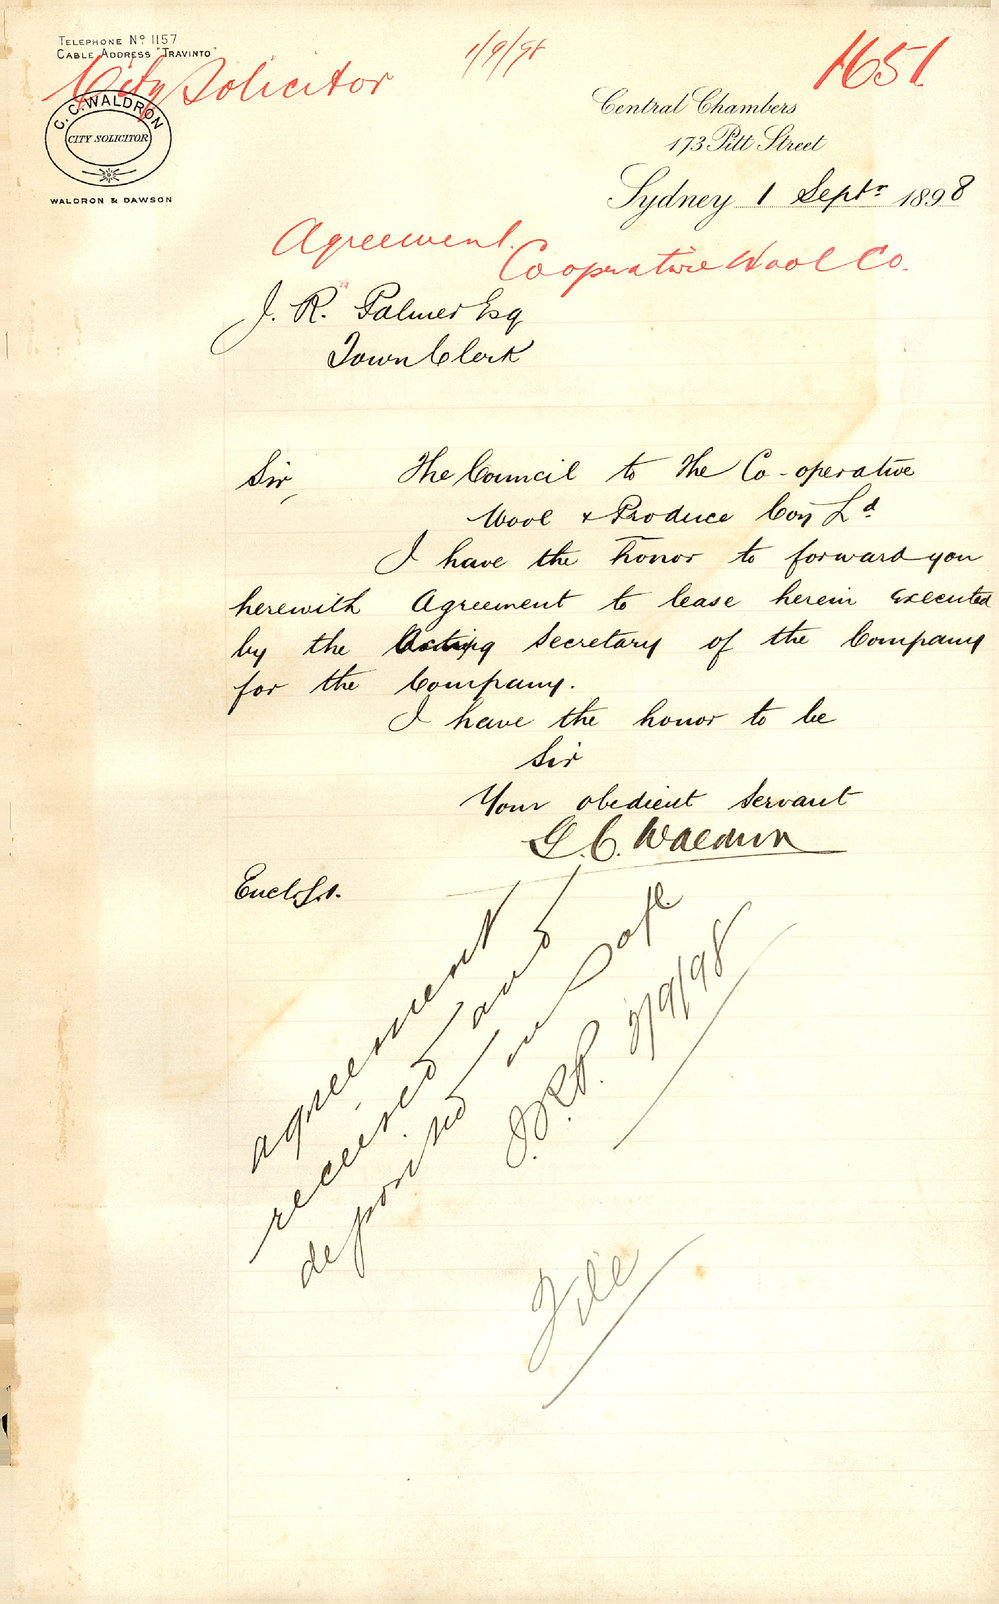 TELEPHONE Nº 1157
CABLE ADDRESS "TRAVINTO"
City Solicitor
1/9/98
1651
C. C. WALDRON
CITY SOLICITOR
WALDRON & DAWSON
Central Chambers
173 Pitt Street
Sydney 1 Septr 1898
Agreement.
Cooperative Wool Co.
J. R. Palmer Esq
Town Clerk
Sir, The Council to The Co-operative
Wool & Produce Coy Ld
I have the honor to forward you
herewith Agreement to lease herein executed
by the Acting Secretary of the Company
for the Company.
I have the honor to be
Sir
Your obedient servant
G. C. Waldron
Encl.
agreement
received and
deposited in Safe
J.R.P. 2/9/98
File